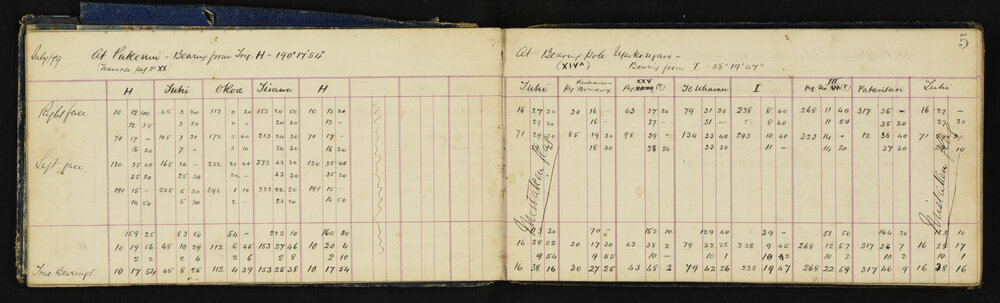 July/79 At Pukenui - Bearing from Trig. H - 190° 17' 54"
(Traverse peg No XX)
H Tuhi Okoa Tirana H
Right face 10 12 40 45 3 20 112 0 20 153 20 50 10 13 20
12 35 3 30 20 50 13 -
70 17 - 105 7 30 172 4 40 213 24 30 70 17 -
16 20 7 - 3 10 24 30 16 20
Left face 130 35 40 165 26 - 232 21 40 273 43 30 130 35 40
35 20 25 30 43 30 35 20
190 15 - 225 5 30 292 1 10 333 22 30 190 15 -
14 50 5 30 0 - 23 20 14 50
159 25 83 50 54 - 222 10 160 30
10 19 56 45 10 29 112 6 45 153 27 46 10 20 4
2 2 2 4 2 6 2 8 2 10
True Bearings 10 17 54 45 8 25 112 4 39 153 25 38 10 17 54
5
At Bearing Pole
(XIVA) Bearing from T - 58° 19' 47"
Tuhi Peg Boundary Peg XXV (?) Te Uharau I Peg No III (?) Pataritari Tuhi
16 27 30 30 16 - 43 37 - 79 31 30 238 8 40 268 11 40 317 36 - 16 27 -
27 20 16 - 37 - 31 - 8 40 11 50 35 20 27 30
71 29 30 85 19 30 98 39 - 134 33 40 293 10 40 323 14 - 12 36 40 71
18 30 38 50 33 30 11 - 14 20 37 30 10
Mistaken flag
Mistaken flag
70 - 152 10 129 40 39 - 51 50 144 30
16 28 22 30 17 30 43 38 2 79 32 25 238 9 45 268 12 57 317 36 7 16 28 17
9 54 9 55 10 - 10 1 10 2 10 2 10 2 10 1
16 38 16 30 27 25 43 48 2 79 42 26 238 19 47 268 22 59 317 46 9 16 38 16